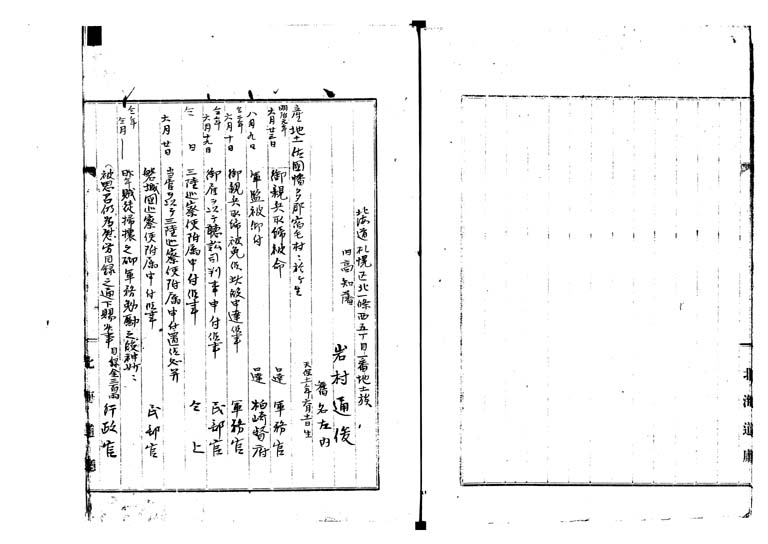 北海道庁
北海道札幌区北一條西五丁目一番地士族
旧高知藩
岩村通俊
舊名左内
天保十一年六月十日生
産地土佐國幡多郡宿毛村ニ於テ生
明治元年
六月廿三日 御親兵取締被命 軍務官
八月九日 軍監被仰付 柏崎督府
仝二年
六月十日 御親兵取締被免候此段申達候事 軍務官
仝年
六月十九日 御雇ヲ以テ聴訟司判事申付候事 民部官
仝日 三陸巡察使附属申付候事 仝上
六月廿日 当官ヲ以テ三陸巡察使附属申付置候処并
磐城國巡察使附属申付候事 民部官
仝年
仝月 昨年賊徒掃攘之砌軍務勉励之段神妙ニ
被思召仍為慰労目録之通下賜候事 目録金三百両 行政官
北海道廳